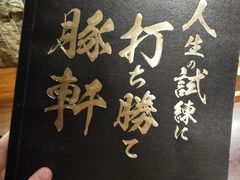 人生の試練に
打ち勝て
豚軒